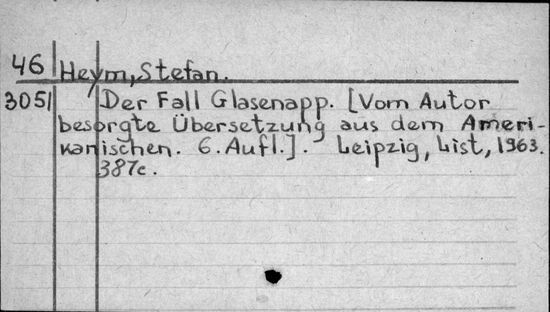 46 Heym, Stefan.
3051 Der Fall Glasenapp. [Vom Autor
besorgte Übersetzung aus dem Ameri-
kanischen. 6. Aufl.]. Leipzig, List, 1963.
387c.